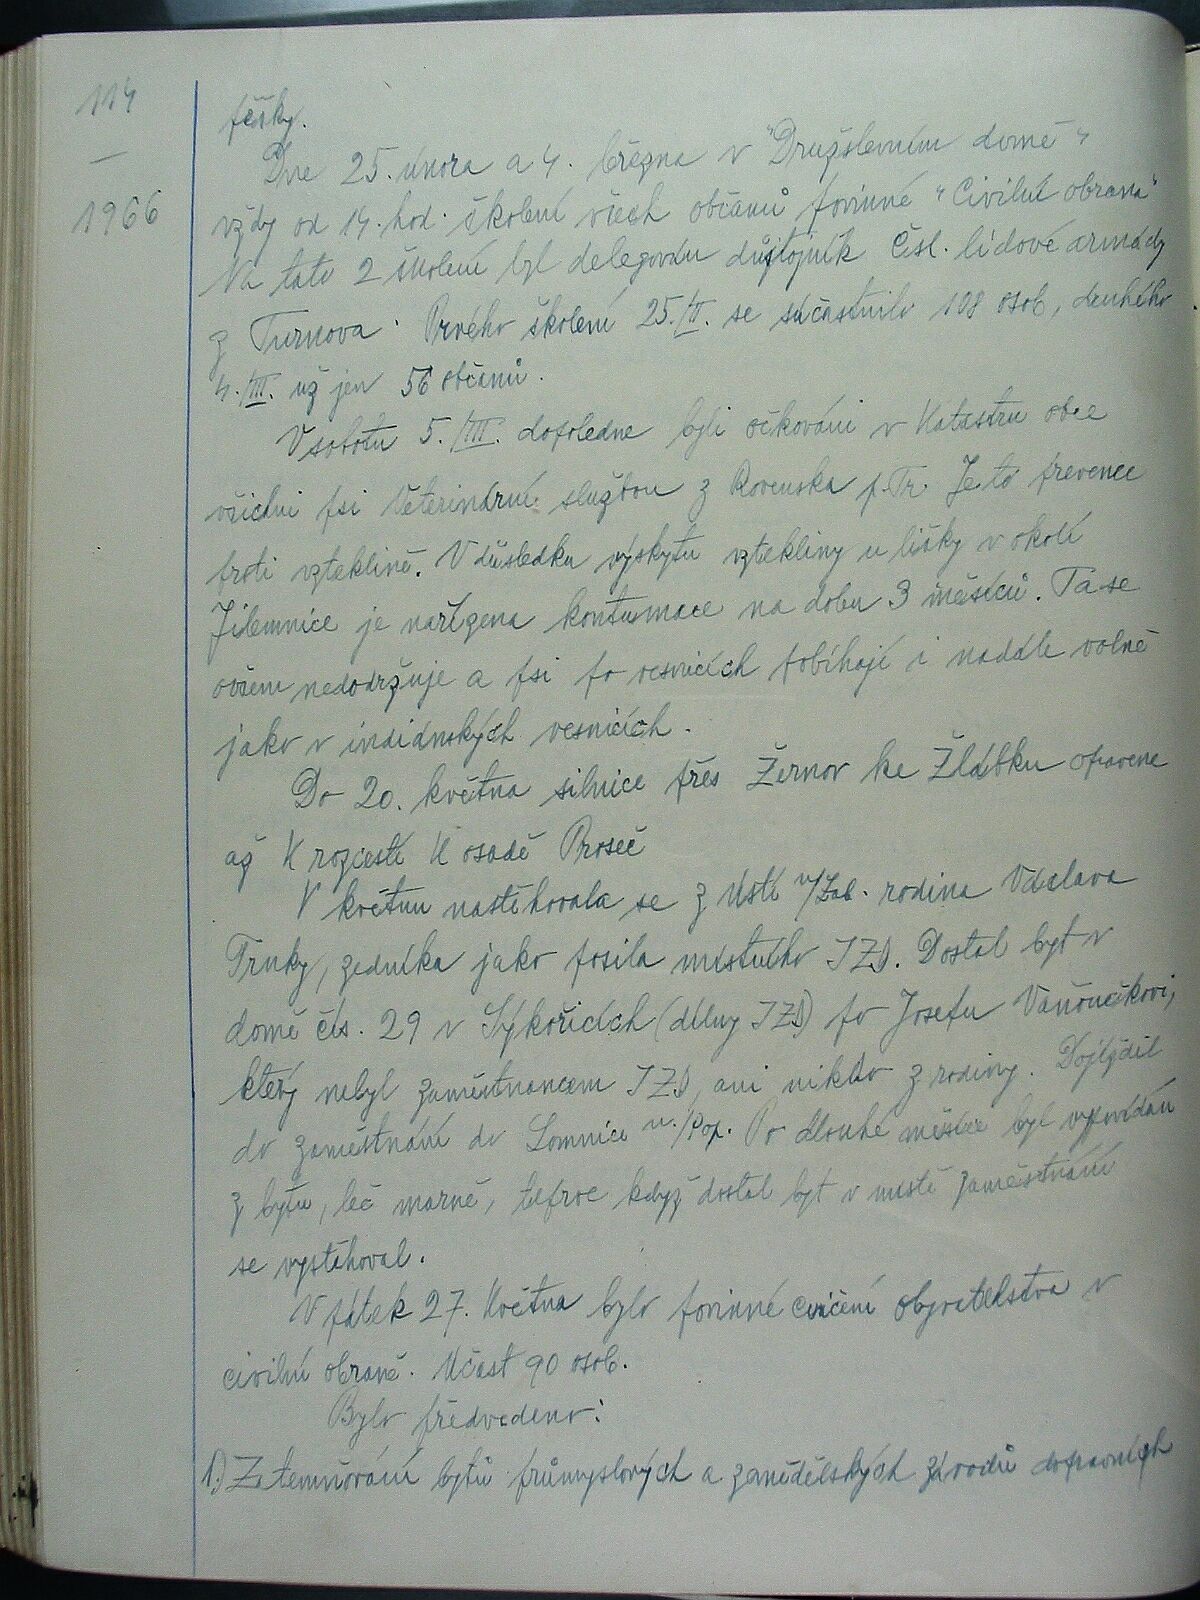 114
—
1966
pěšky.
Dne 25. února a 4. března v "Družstevním domě"
vždy od 14. hod. školení všech občanů povinné "Civilní obrana"
Na tato 2 školení byl delegován důstojník Čsl. lidové armády
z Turnova. Prvého školení 25./II. se súčastnilo 108 osob, druhého
4./III. už jen 56 občanů.
V sobotu 5./III. dopoledne byli očkováni v katastru obce
všichni psi veterinární službou z Rovenska p. Tr. Je to prevence
proti vzteklině. V důsledku výskytu vztekliny u lišky v okolí
Jilemnice je nařízena kontumace na dobu 3 měsíců. Ta se
ovšem nedodržuje a psi po vesnicích pobíhají i nadále volně
jako v indiánských vesnicích.
Do 20. května silnice přes Žernov ke Žlábku opravena
až k rozcestí k osadě Proseč
V květnu nastěhovala se z Ústí n/Lab. rodina Václava
Trnky, zedníka jako posila místního JZD. Dostal byt v
domě čís. 29 v Sýkořicích (dílny JZD) po Josefu Vaňoučkovi,
který nebyl zaměstnancem JZD, ani nikdo z rodiny. Dojížděl
do zaměstnání do Lomnice n./Pop. Po dlouhé měsíce byl vypovídán
z bytu, leč marně, teprve když dostal byt v místě zaměstnání
se vystěhoval.
V pátek 27. května bylo povinné cvičení obyvatelstva v
civilní obraně. Účast 90 osob.
Bylo předvedeno:
1.) Zatemňování bytů průmyslových a zemědělských závodů dopravních